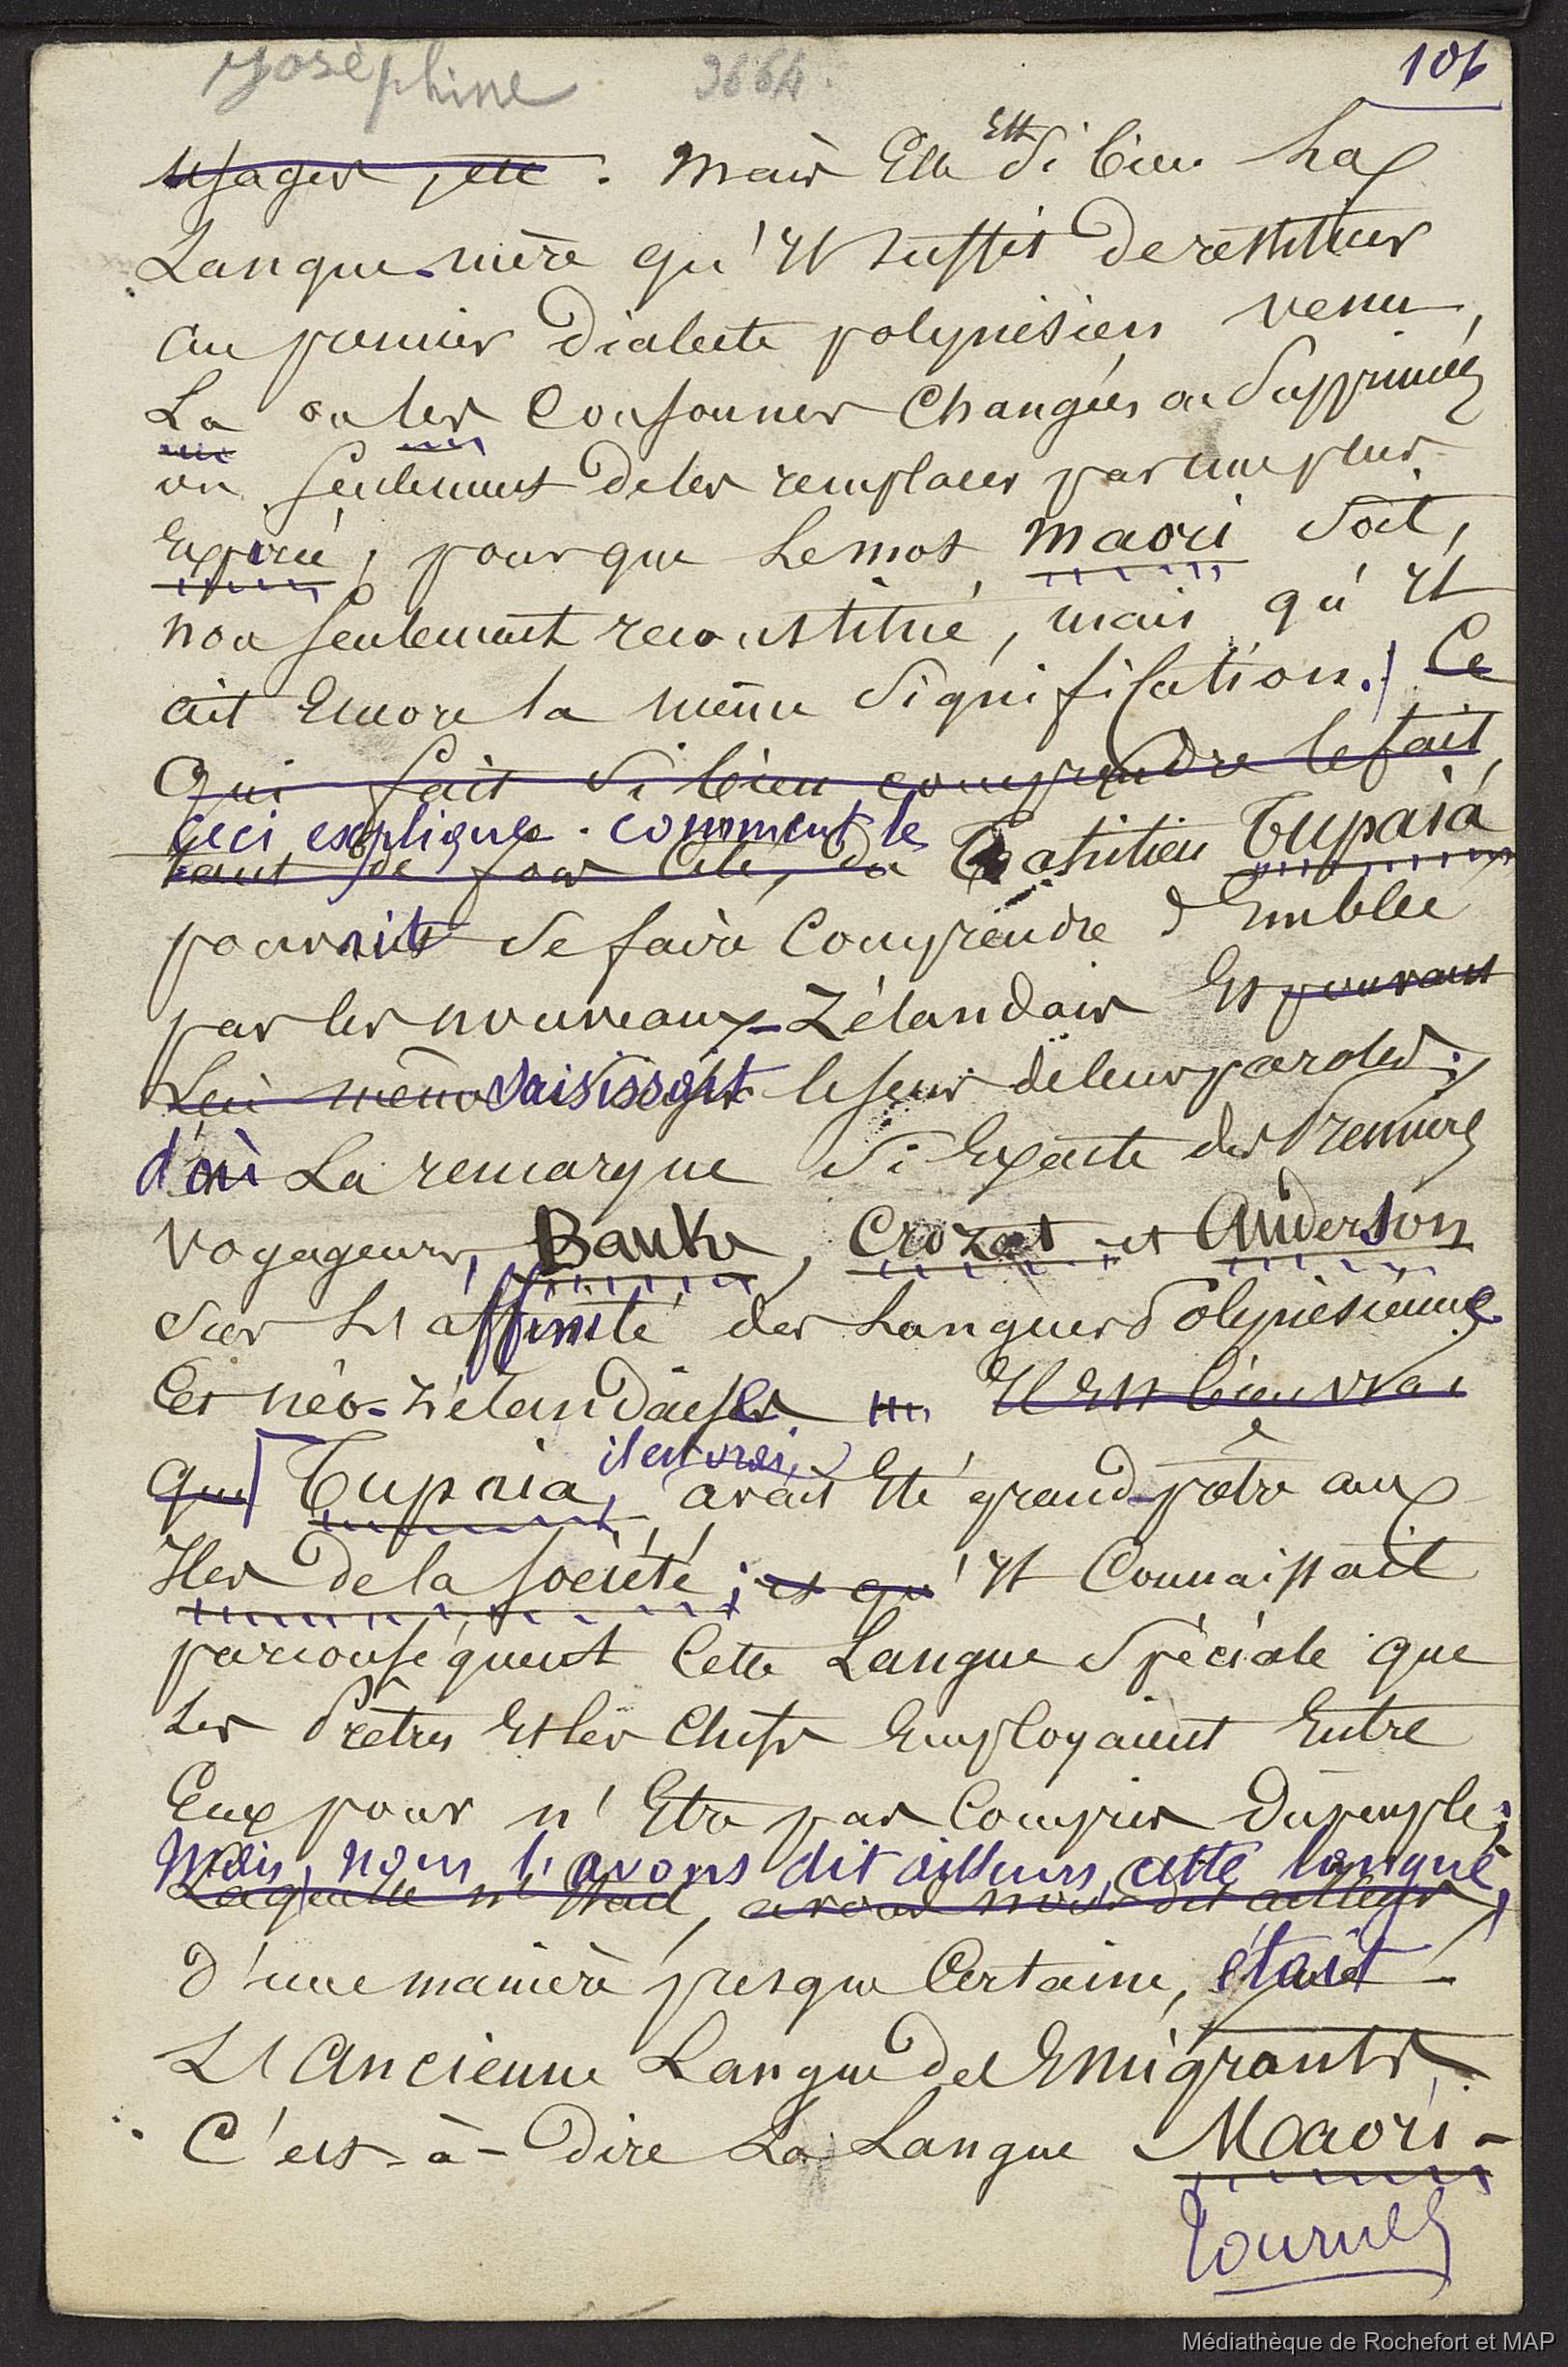 Joséphine 3664.
106
usages, etc. Mais Elle Est si bien La
Langue-mère qu'Il suffit de restituer
au premier Dialecte polynésien venu,
La ou les Consonnes Changées ou Supprimées
ou seulement de les remplacer par une plus
Expirée, pour que Le mot maori soit,
non seulement reconstitué, mais qu'Il
ait Encore la même Signification. Ce
Qui fait si bien comprendre le fait,
Ceci explique comment le
tant de fois Cité, du Tahitien Tupaia
pouvait se faire Comprendre d'Emblée
par les nouveaux-Zélandais Et pouvant
Lui même saisissait le sens de leurs paroles;
d'où La remarque si Exacte des Premiers
Voyageurs, Banks, Crozet et Anderson
sur L'affinité des Langues Polynésienne
Et néo-Zélandaises Il Est bien vrai
que Tupaia, il est vrai, avait Eté grand-prêtre aux
Iles de la Société; et qu'Il Connaissait
par conséquent Cette Langue Spéciale que
Les Prêtres Et les Chefs Employaient Entre
Eux pour n'Etre pas Compris Du peuple;
Mais, nous l'avons dit ailleurs, cette langue,
Laquelle n'était, avons nous dit ailleurs,
D'une manière presque Certaine, était
L'Ancienne Langue des Emigrants,
C'est-à-Dire La Langue Maori -
Tournez
Médiathèque de Rochefort et MAP